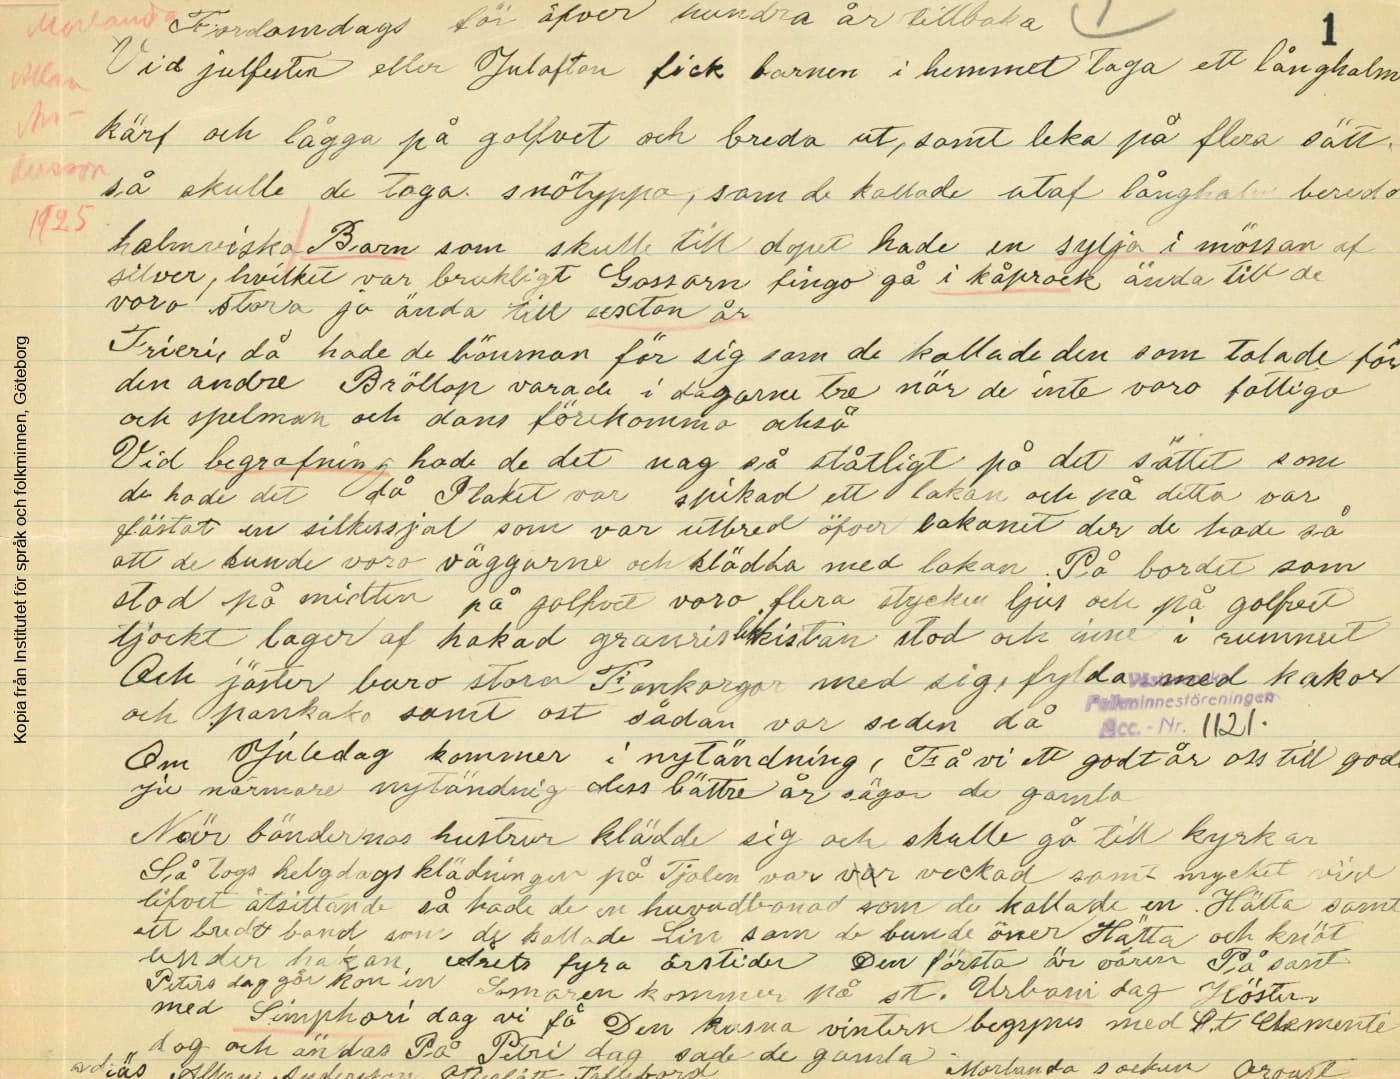 Morlanda
Allan
An-
dersson
1925
1
Fordomdags för öfver hundra år tillbaka
Vid julfesten eller Julafton fick barnen i hemmet taga ett långhalm
kärf och lägga på golfvet och breda ut, samt leka på flera sätt.
så skulle de taga snötyppa, som de kallade utaf långhalm bereda
halmviska Barn som skulle till dopet hade en sylja i mössan af
silver, hvilket var brukligt Gossarn fingo gå i kåprock ända till de
voro stora ja ända till sexton år
Frieri, då hade de bönman för sig som de kallade den som talade för
den andre Bröllop varade i dagarne tre när de inte voro fattiga
och spelman och dans förekommo också
Vid begrafning hade de det nog så ståtligt på det sättet som
de hade det då Taket var spikad ett lakan och på detta var
fästat en silkessjal som var utbred öfver lakanet der de hade så
att de kunde voro väggarne och klädda med lakan. På bordet som
stod på midten på golfvet voro flera stycken ljus och på golfvet
tjockt lager af hakad granris kistan stod och inne i rummet
Och jäster buro stora Fonkorgar med sig, fylda med kakor
och pankaka samt ost sådan var seden då
Folkminnesföreningen
Acc. - Nr. 1121.
Om Juledag kommer i nytändning, Få vi ett godt år oss till god
ju närmare nytändnig dess bättre år säger de gamla
När böndernas hustrur klädde sig och skulle gå till kyrkan
Så togs helgdagsklädningen på Tjolen var var veckad samt mycket vid
lifvet åtsittande så hade de en huvudbonad som de kallade en Hätta samt
ett bredt band som de kallade Lin som de bunde över Hätta och knöt
under hakan, Årets fyra årstider Den första är våren På samt
Peters dag går kon in Somaren kommer på st. Urbani dag Hösten
med Simphori dag vi få Den kusna vintern begynes med S.t Clemente
dag och ändas På Petri dag sade de gamla
Allan Andersson Tåleboard Morlanda socken Oroust
Kopia från Institutet för språk och folkminnen, Göteborg